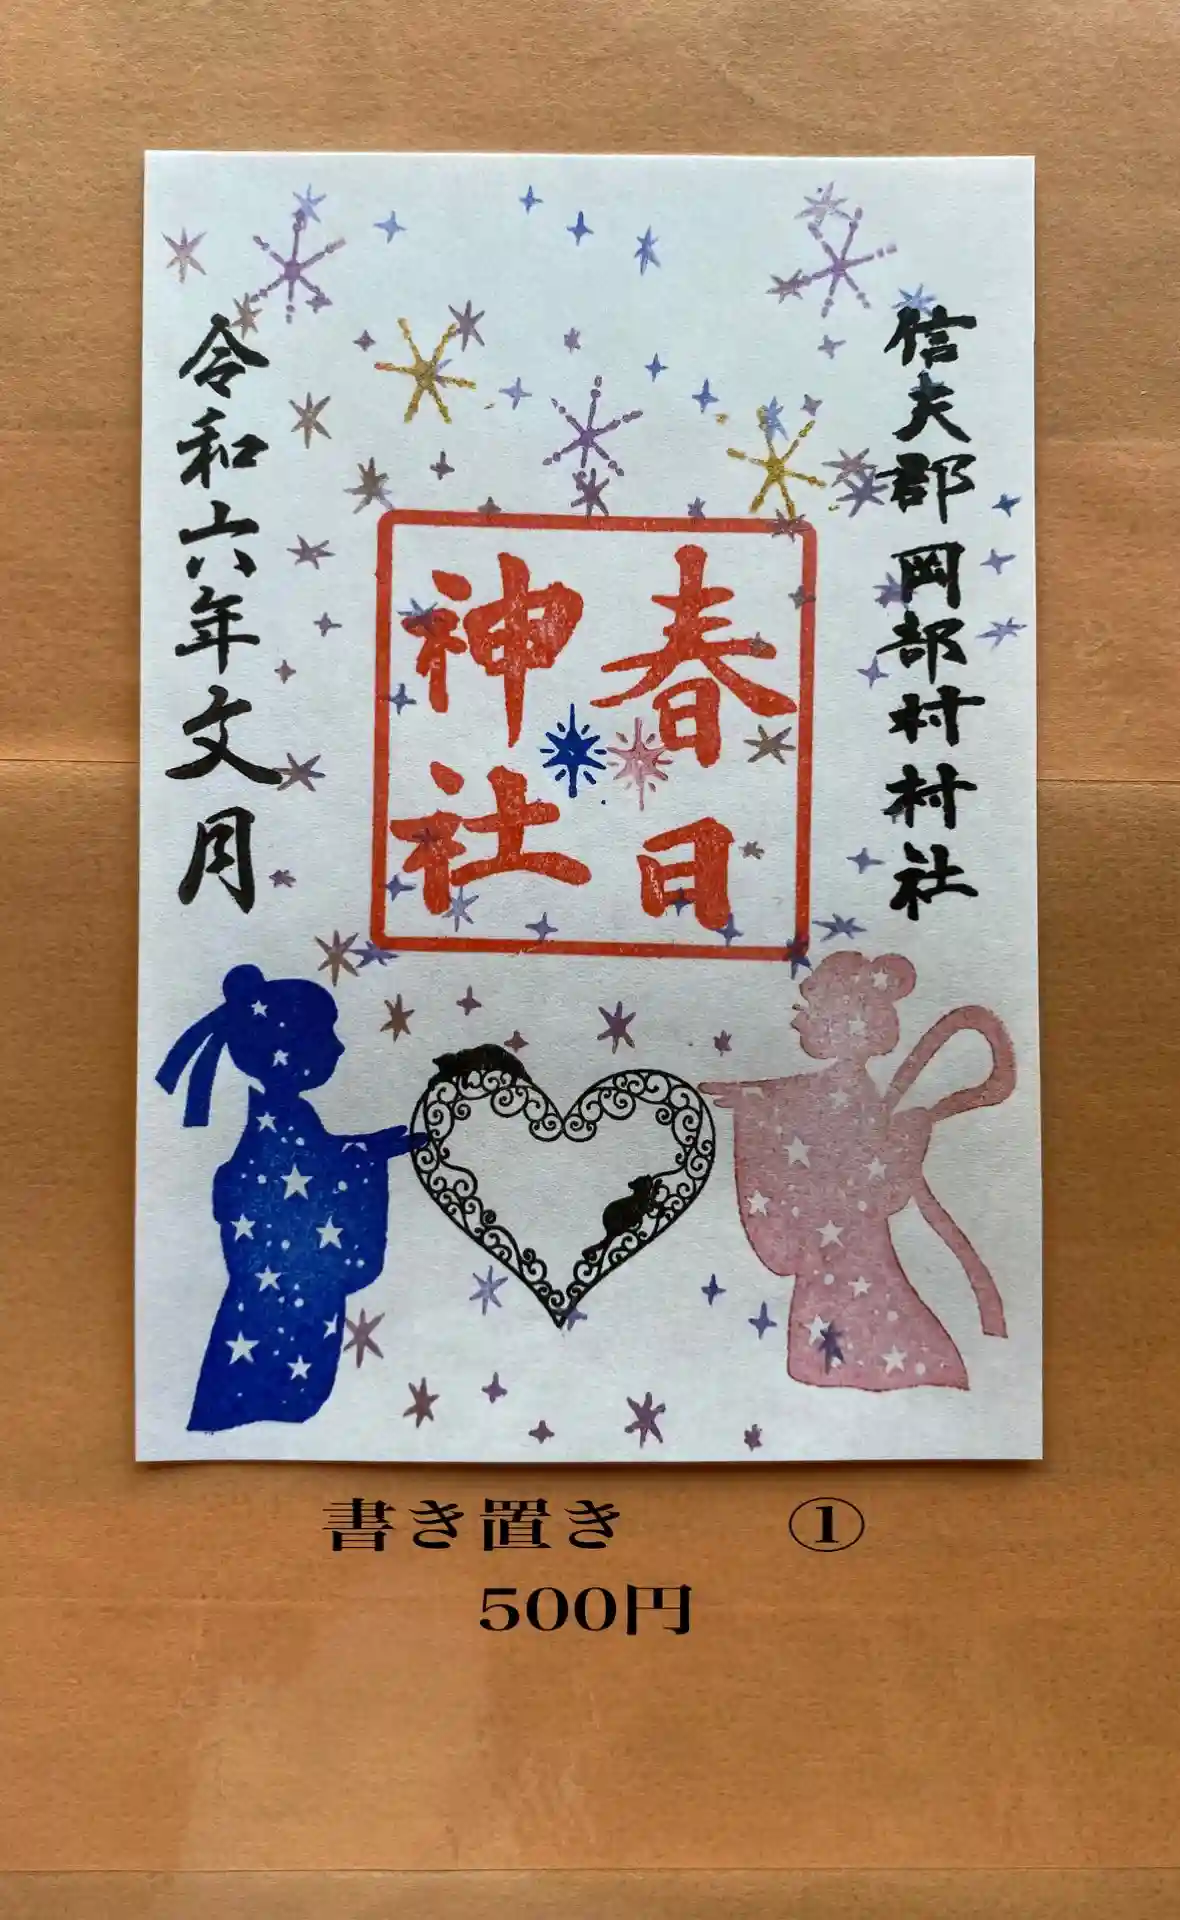 信夫郡岡部村村社
春日
神社
令和六年文月
書き置き ①
500円